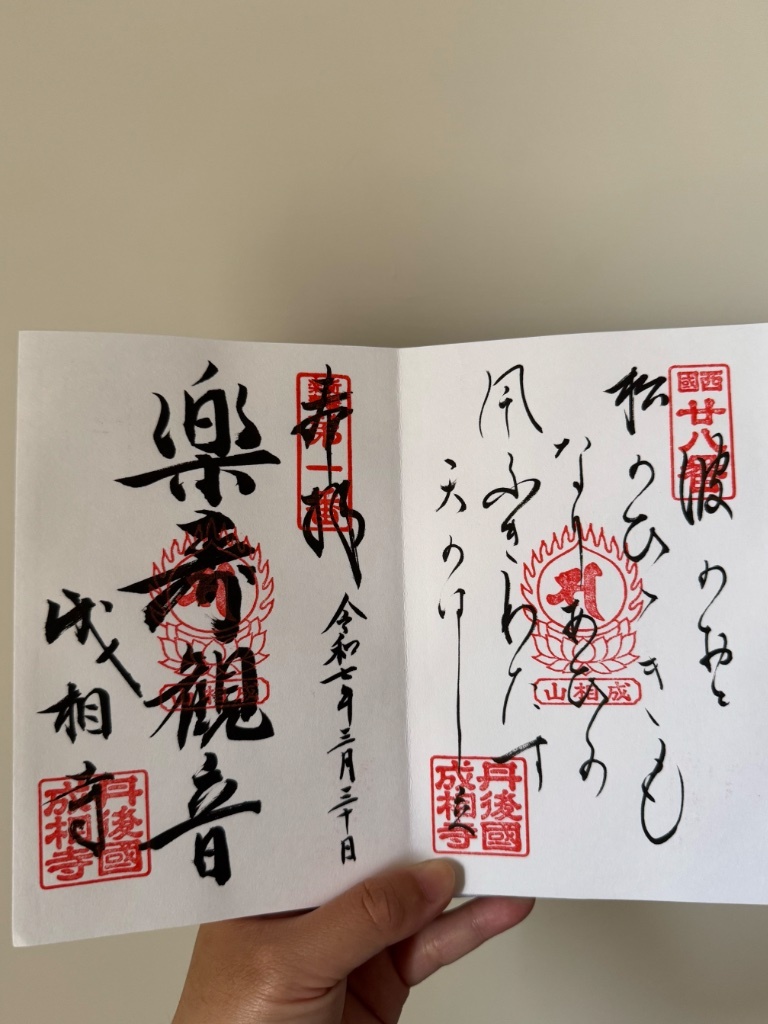 西國
廿八番
波のおと
松のひゞきも
なりあひの
風ふきわたす
天のはし立
成相山
丹後國
成相寺
奉拝
第一番
令和七年三月三十日
楽寿觀音
成相山
成相寺
丹後國
成相寺